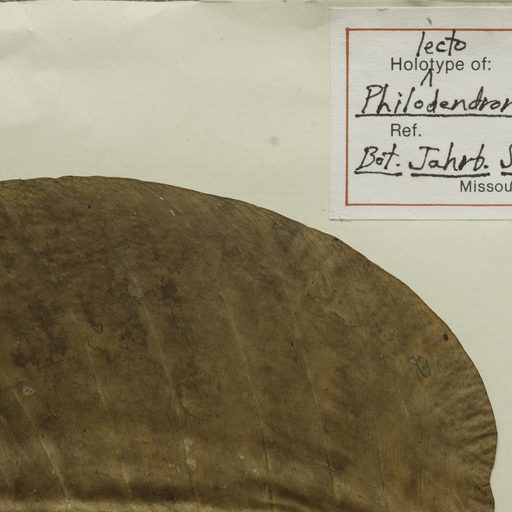 lecto
Holotype of:
Philodendron
Ref.
Bot. Jahrb.
Missou